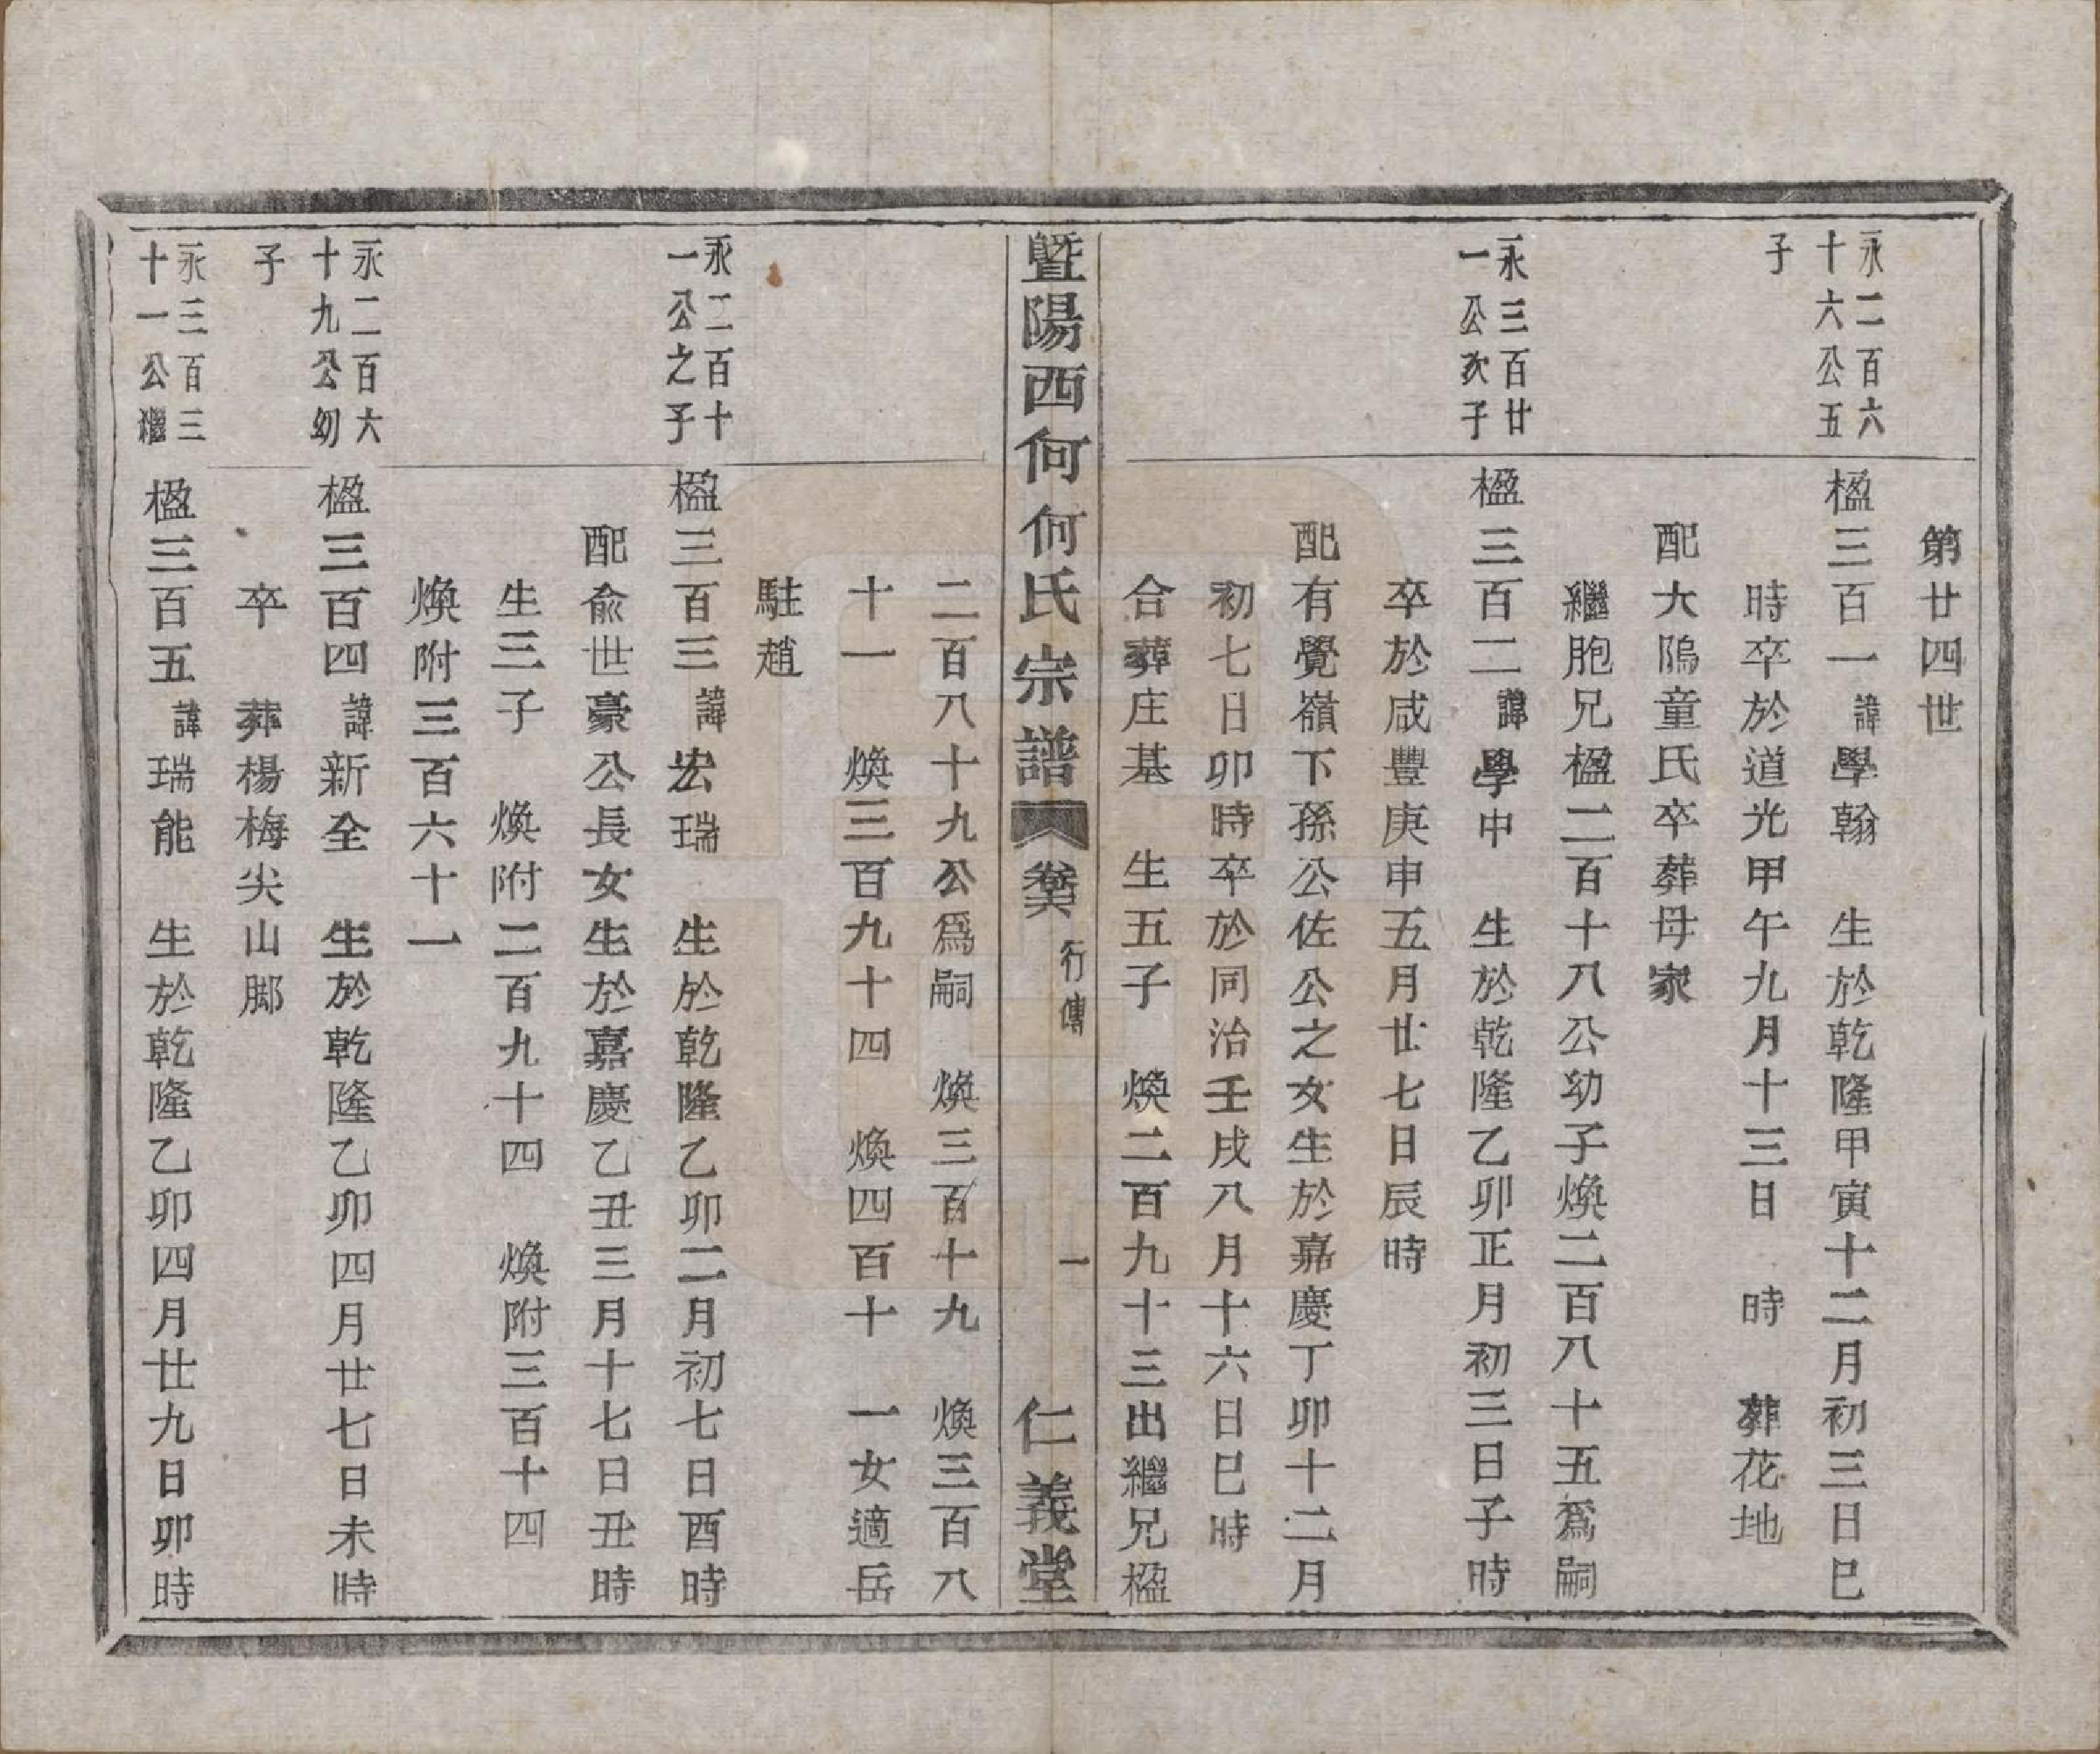 第廿四世
永二百六
十六公五
子
楹三百一諱學翰　生於乾隆甲寅十二月初三日巳
時卒於道光甲午九月十三日　時　葬花地
配大隖童氏卒葬母家
繼胞兄楹二百十八公幼子煥二百八十五爲嗣
永三百廿
一公次子
楹三百二諱學中　生於乾隆乙卯正月初三日子時
卒於咸豐庚申五月廿七日辰時
配有覺嶺下孫公佐公之女生於嘉慶丁卯十二月
初七日卯時卒於同治壬戌八月十六日巳時
合葬庄基　生五子　煥二百九十三出繼兄楹
暨陽西何何氏宗譜　卷六　行傳　一　仁義堂
二百八十九公爲嗣　煥三百十九　煥三百八
十一　煥三百九十四　煥四百十　一女適岳
駐趙
永二百十
一公之子
楹三百三諱宏瑞　生於乾隆乙卯二月初七日酉時
配俞世豪公長女生於嘉慶乙丑三月十七日丑時
生三子　煥附二百九十四　煥附三百十四
煥附三百六十一
永二百六
十九公幼
子
楹三百四諱新全　生於乾隆乙卯四月廿七日未時
卒　葬楊梅尖山脚
永三百三
十一公繼
楹三百五諱瑞能　生於乾隆乙卯四月廿九日卯時